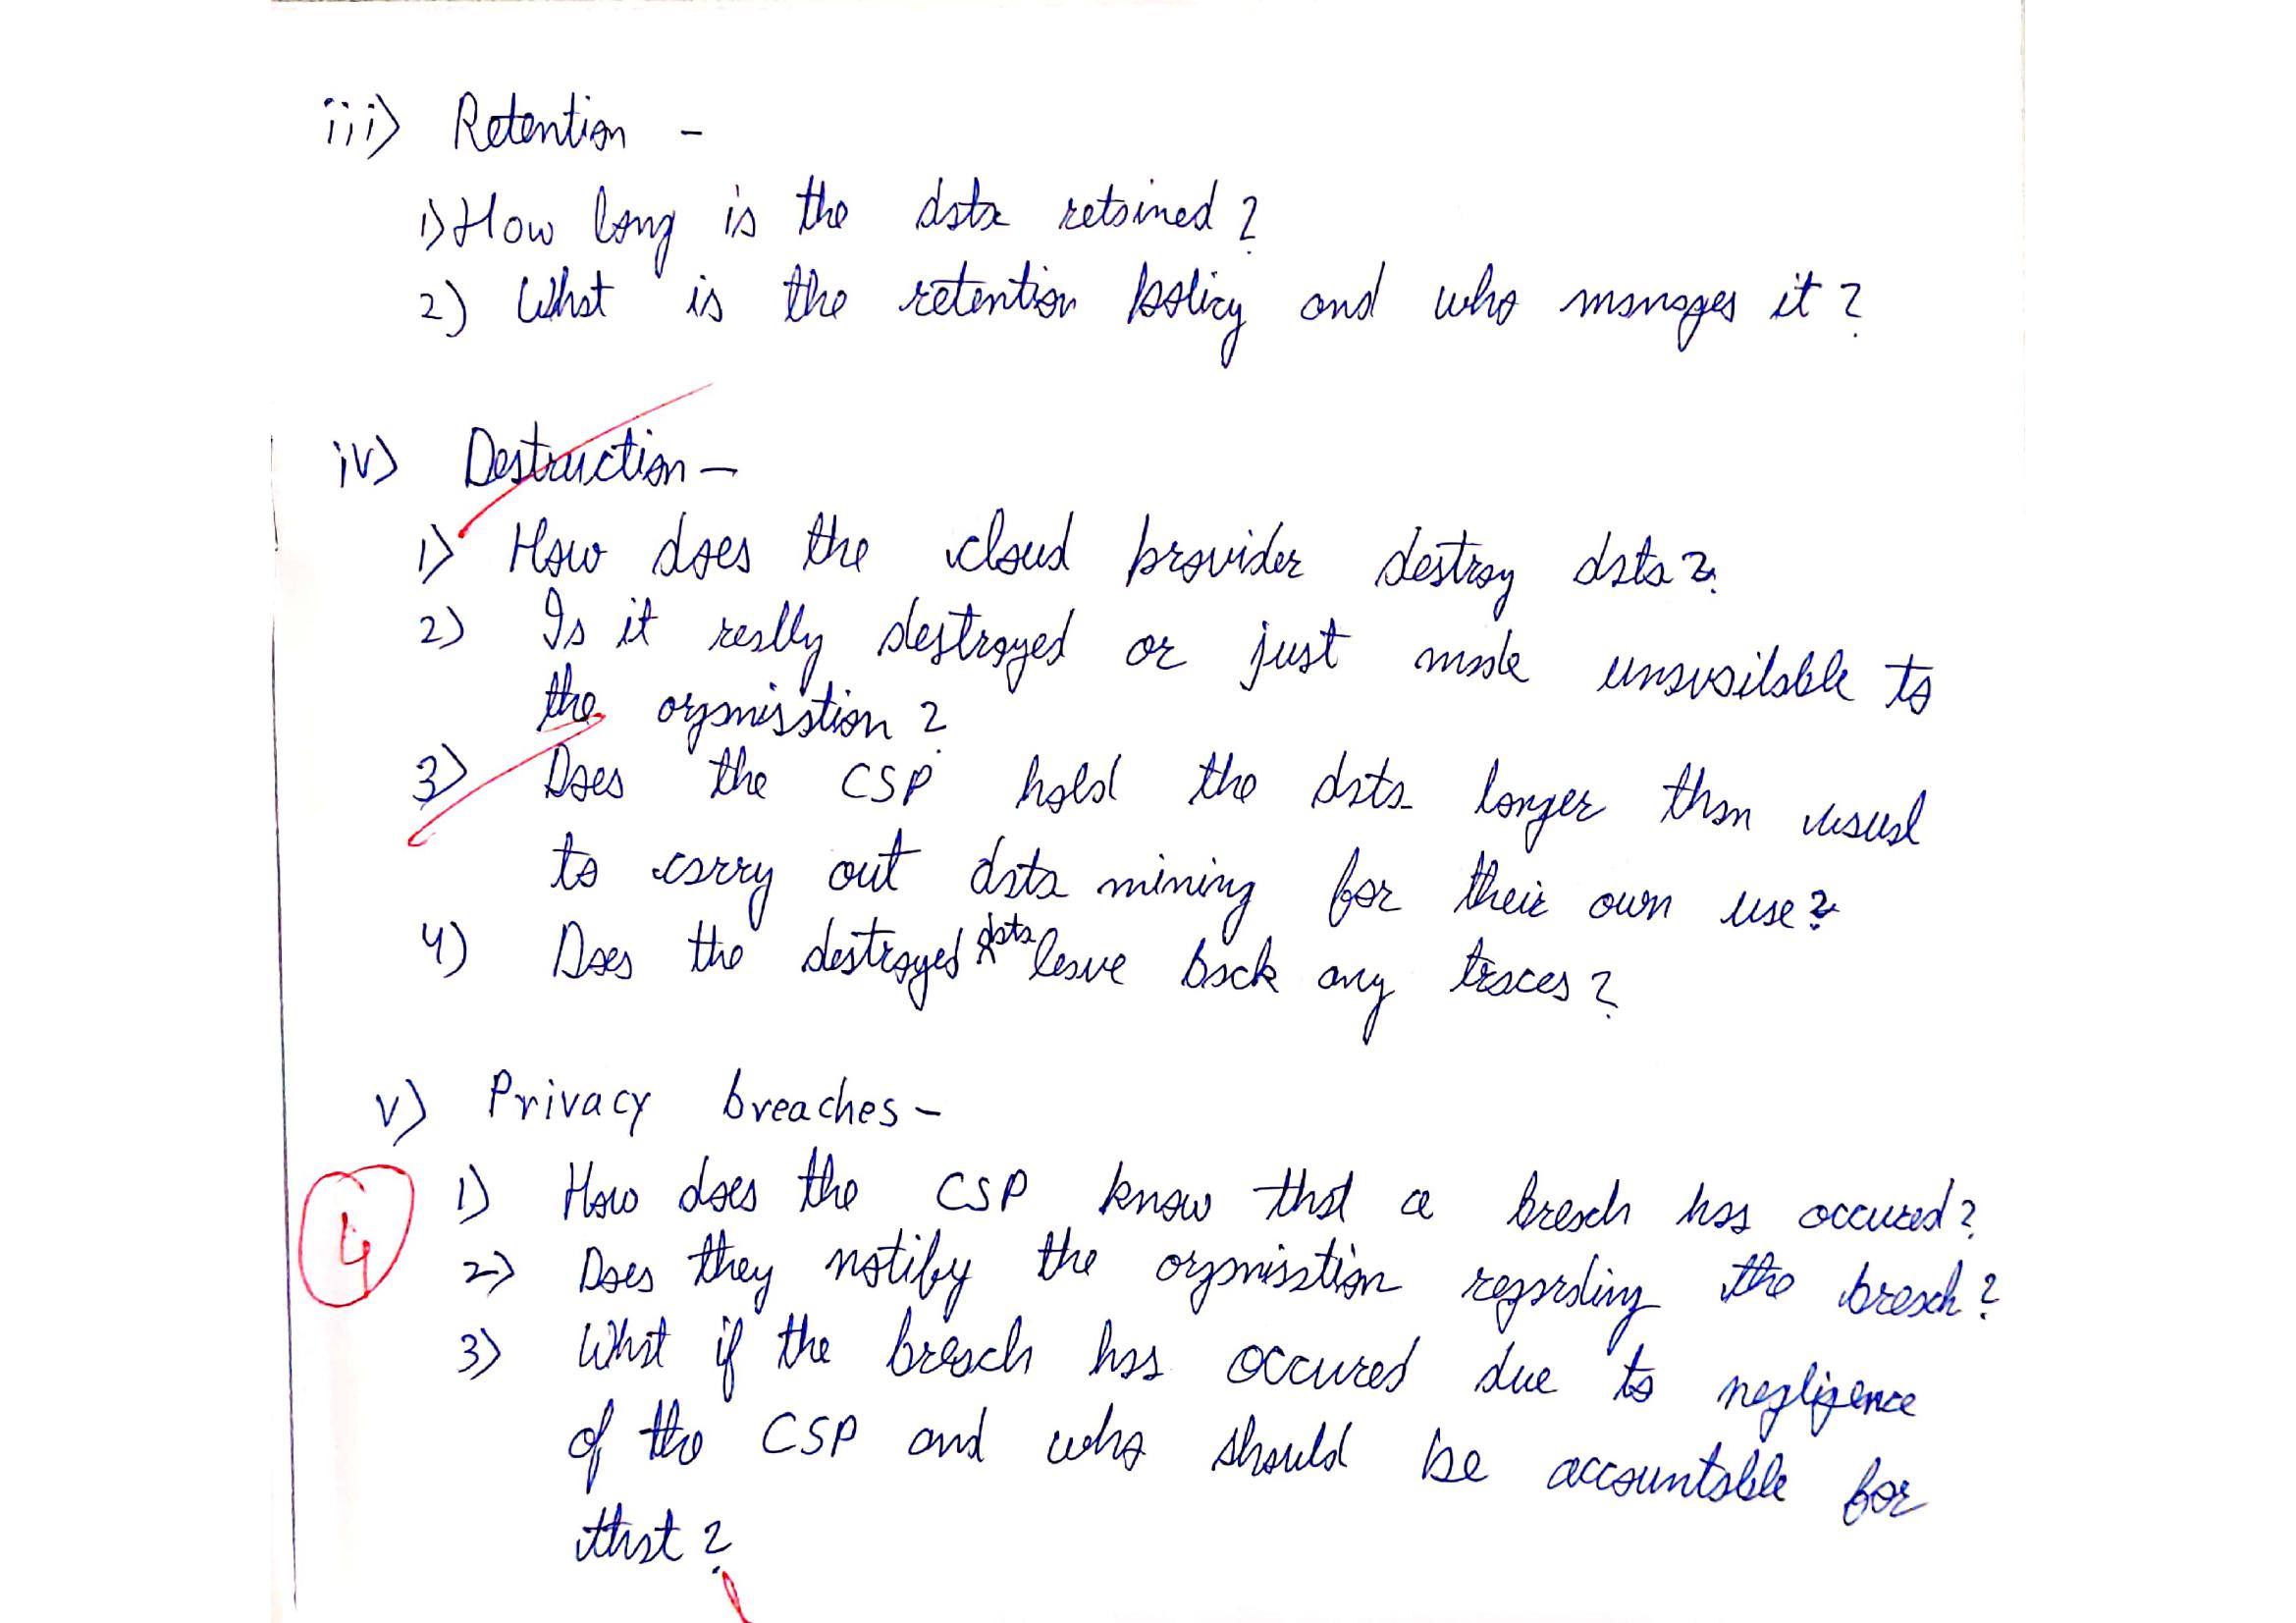 iii) Retention -
1) How long is the data retained?
2) What is the retention policy and who manages it?
iv) Destruction -
1) How does the cloud provider destroy data?
2) Is it really destroyed or just made unavailable to
the organisation?
3) Does the CSP hold the data longer than usual
to carry out data mining for their own use?
4) Does the destroyed data leave back any traces?
v) Privacy breaches -
1) How does the CSP know that a breach has occured?
4
2) Does they notify the organisation regarding the breach?
3) What if the breach has occured due to negligence
of the CSP and who should be accountable for
that?